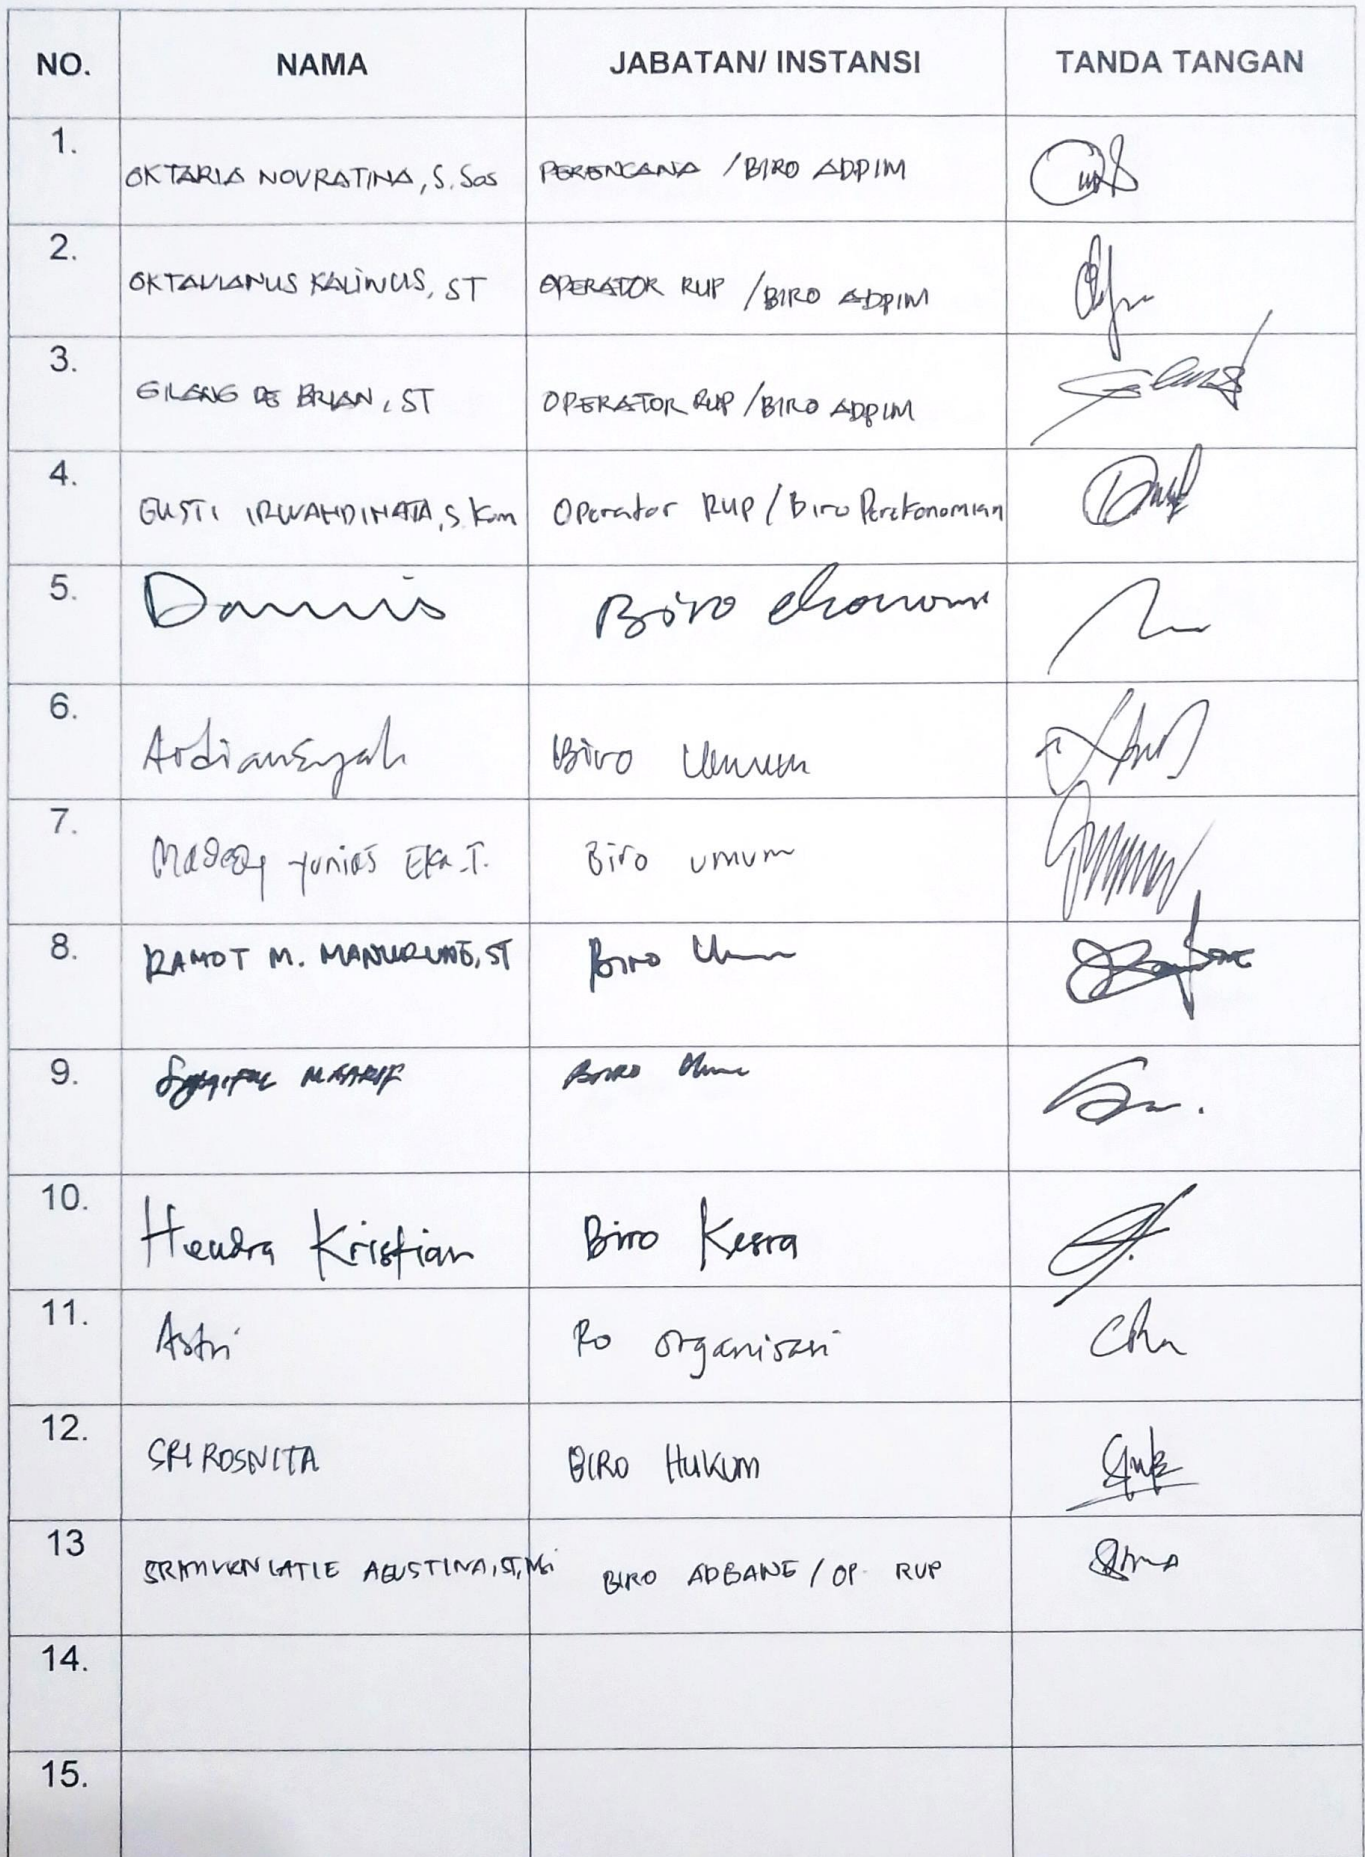 NO. NAMA JABATAN/ INSTANSI TANDA TANGAN
1. OKTARIA NOVRATINA, S.Sos PERENCANA / BIRO ADPIM
2. OKTAVIANUS KALINUS, ST OPERATOR RUP / BIRO ADPIM
3. GILANG DE BRIAN, ST OPERATOR RUP / BIRO ADPIM
4. GUSTI IRWAHDINATA, S.Kom Operator RUP / Biro Perekonomian
5. Dannis Biro ekonomi
6. Ardiansyah Biro Umum
7. Yunias Eka.T. Biro umum
8. RAMOT M. MANURUNG, ST Biro Umum
9. MAARIF BIRO Umum
10. Hendra Kristian Biro Kesra
11. Astri Ro organisasi
12. SRI ROSNITA BIRO HUKUM
13 AGUSTINA, ST, MSi BIRO ADBANG / OP. RUP
14.
15.